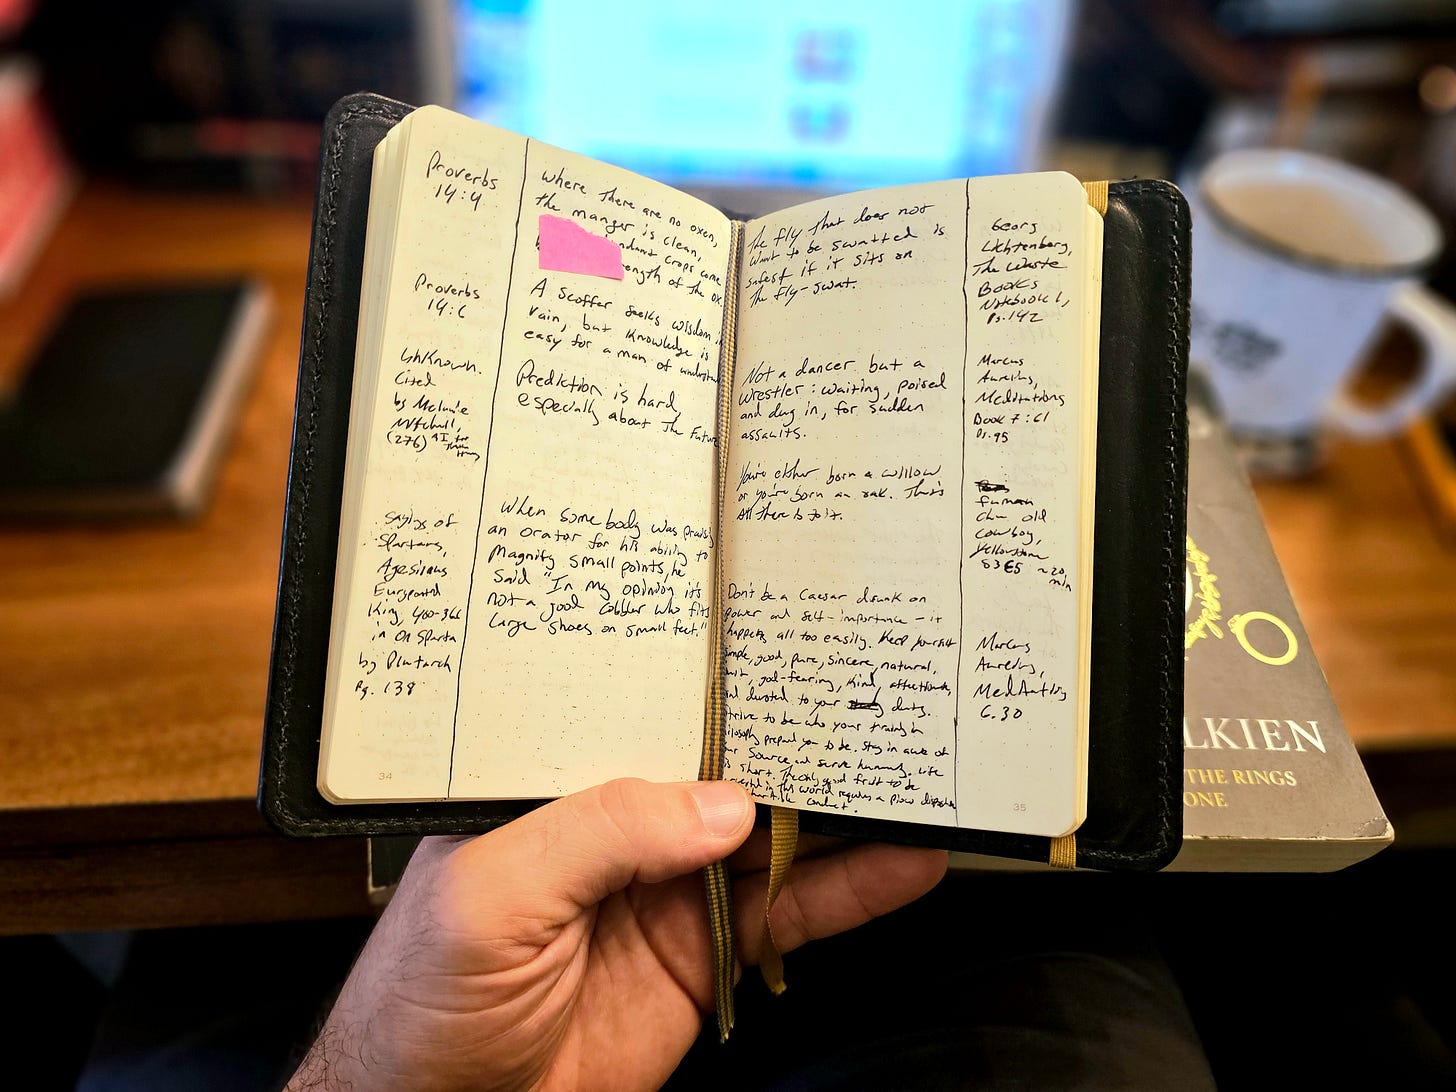 Proverbs
14:4
where there are no oxen,
the manger is clean,
crops come
strength of the ox.
Proverbs
14:6
A scoffer seeks wisdom
vain, but knowledge is
easy for a man of
Unknown.
Cited
by Melanie
Mitchell,
(276)
Prediction is hard,
especially about the future
sayings of
Spartans,
Agesilaus
King, 400-360
in On Sparta
by Plutarch
Pg. 138
When somebody was
an orator for his ability to
magnify small points, he
said "In my opinion it's
not a good cobbler who fits
large shoes on small feet."
34
The fly that does not
want to be swatted is
safest if it sits on
the fly-swat.
Georg
Lichtenberg,
The Waste
Books
Notebook L,
Pg. 142
Not a dancer but a
wrestler: waiting, poised
and dug in, for sudden
assaults.
Marcus
Aurelius,
Meditations
Book 7:61
Pg. 95
You're either born a willow
or you're born an oak. That's
all there is to it.
old
cowboy,
Yellowstone
S3E5 ~20
min
Don't be a Caesar drunk on
power and self-importance – it
happens all too easily. Keep yourself
simple, good, pure, sincere, natural,
god-fearing, kind, affectionate,
and devoted to your duty.
strive to be who your training in
philosophy prepared you to be. Stay in awe of
Source and serve humanity. Life
is short. The only good fruit to be
in this world requires a pious disposition
charitable conduct.
Marcus
Aurelius,
Meditations
6.30
35
LKIEN
THE RINGS
ONE